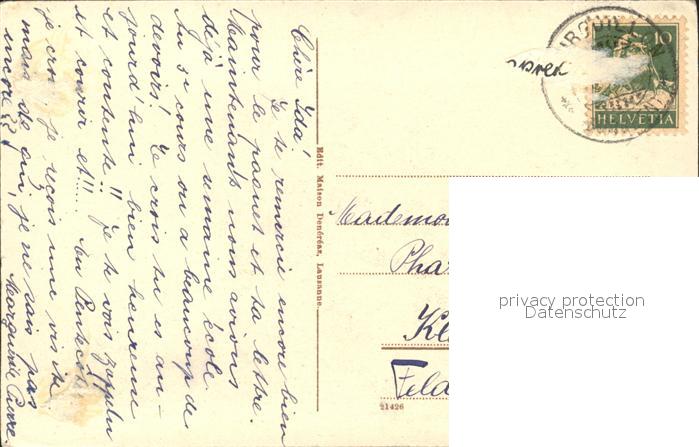 Chère Ida!
Je te remercie encore bien
pour le paquet et ta lettre.
Maintenant nous avions
déjà une semaine école.
Au si cours on a beaucoup de
devoirs! Je crois tu es au-
jourd'hui bien heureuse
et contente!! Je te vois
et courir et!!... Au Pentecôte
je crois je reçois une visite
mais de qui, je ne sais pas
encore??
Marguerite
Edit. Maison Denéréaz, Lausanne.
10
HELVETIA
Mademoi
Pha
Kl
Feld
21426
privacy protection
Datenschutz